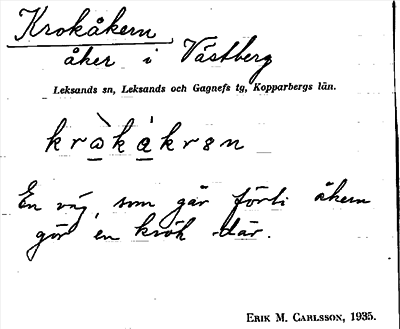 Krokåkern
åker i Västberg
Leksands sn, Leksands och Gagnefs tg, Kopparbergs län.
krɷ̀kákrən
En väg, som går förbi åkern
gör en krok där.
ERIK M. CARLSSON, 1935.